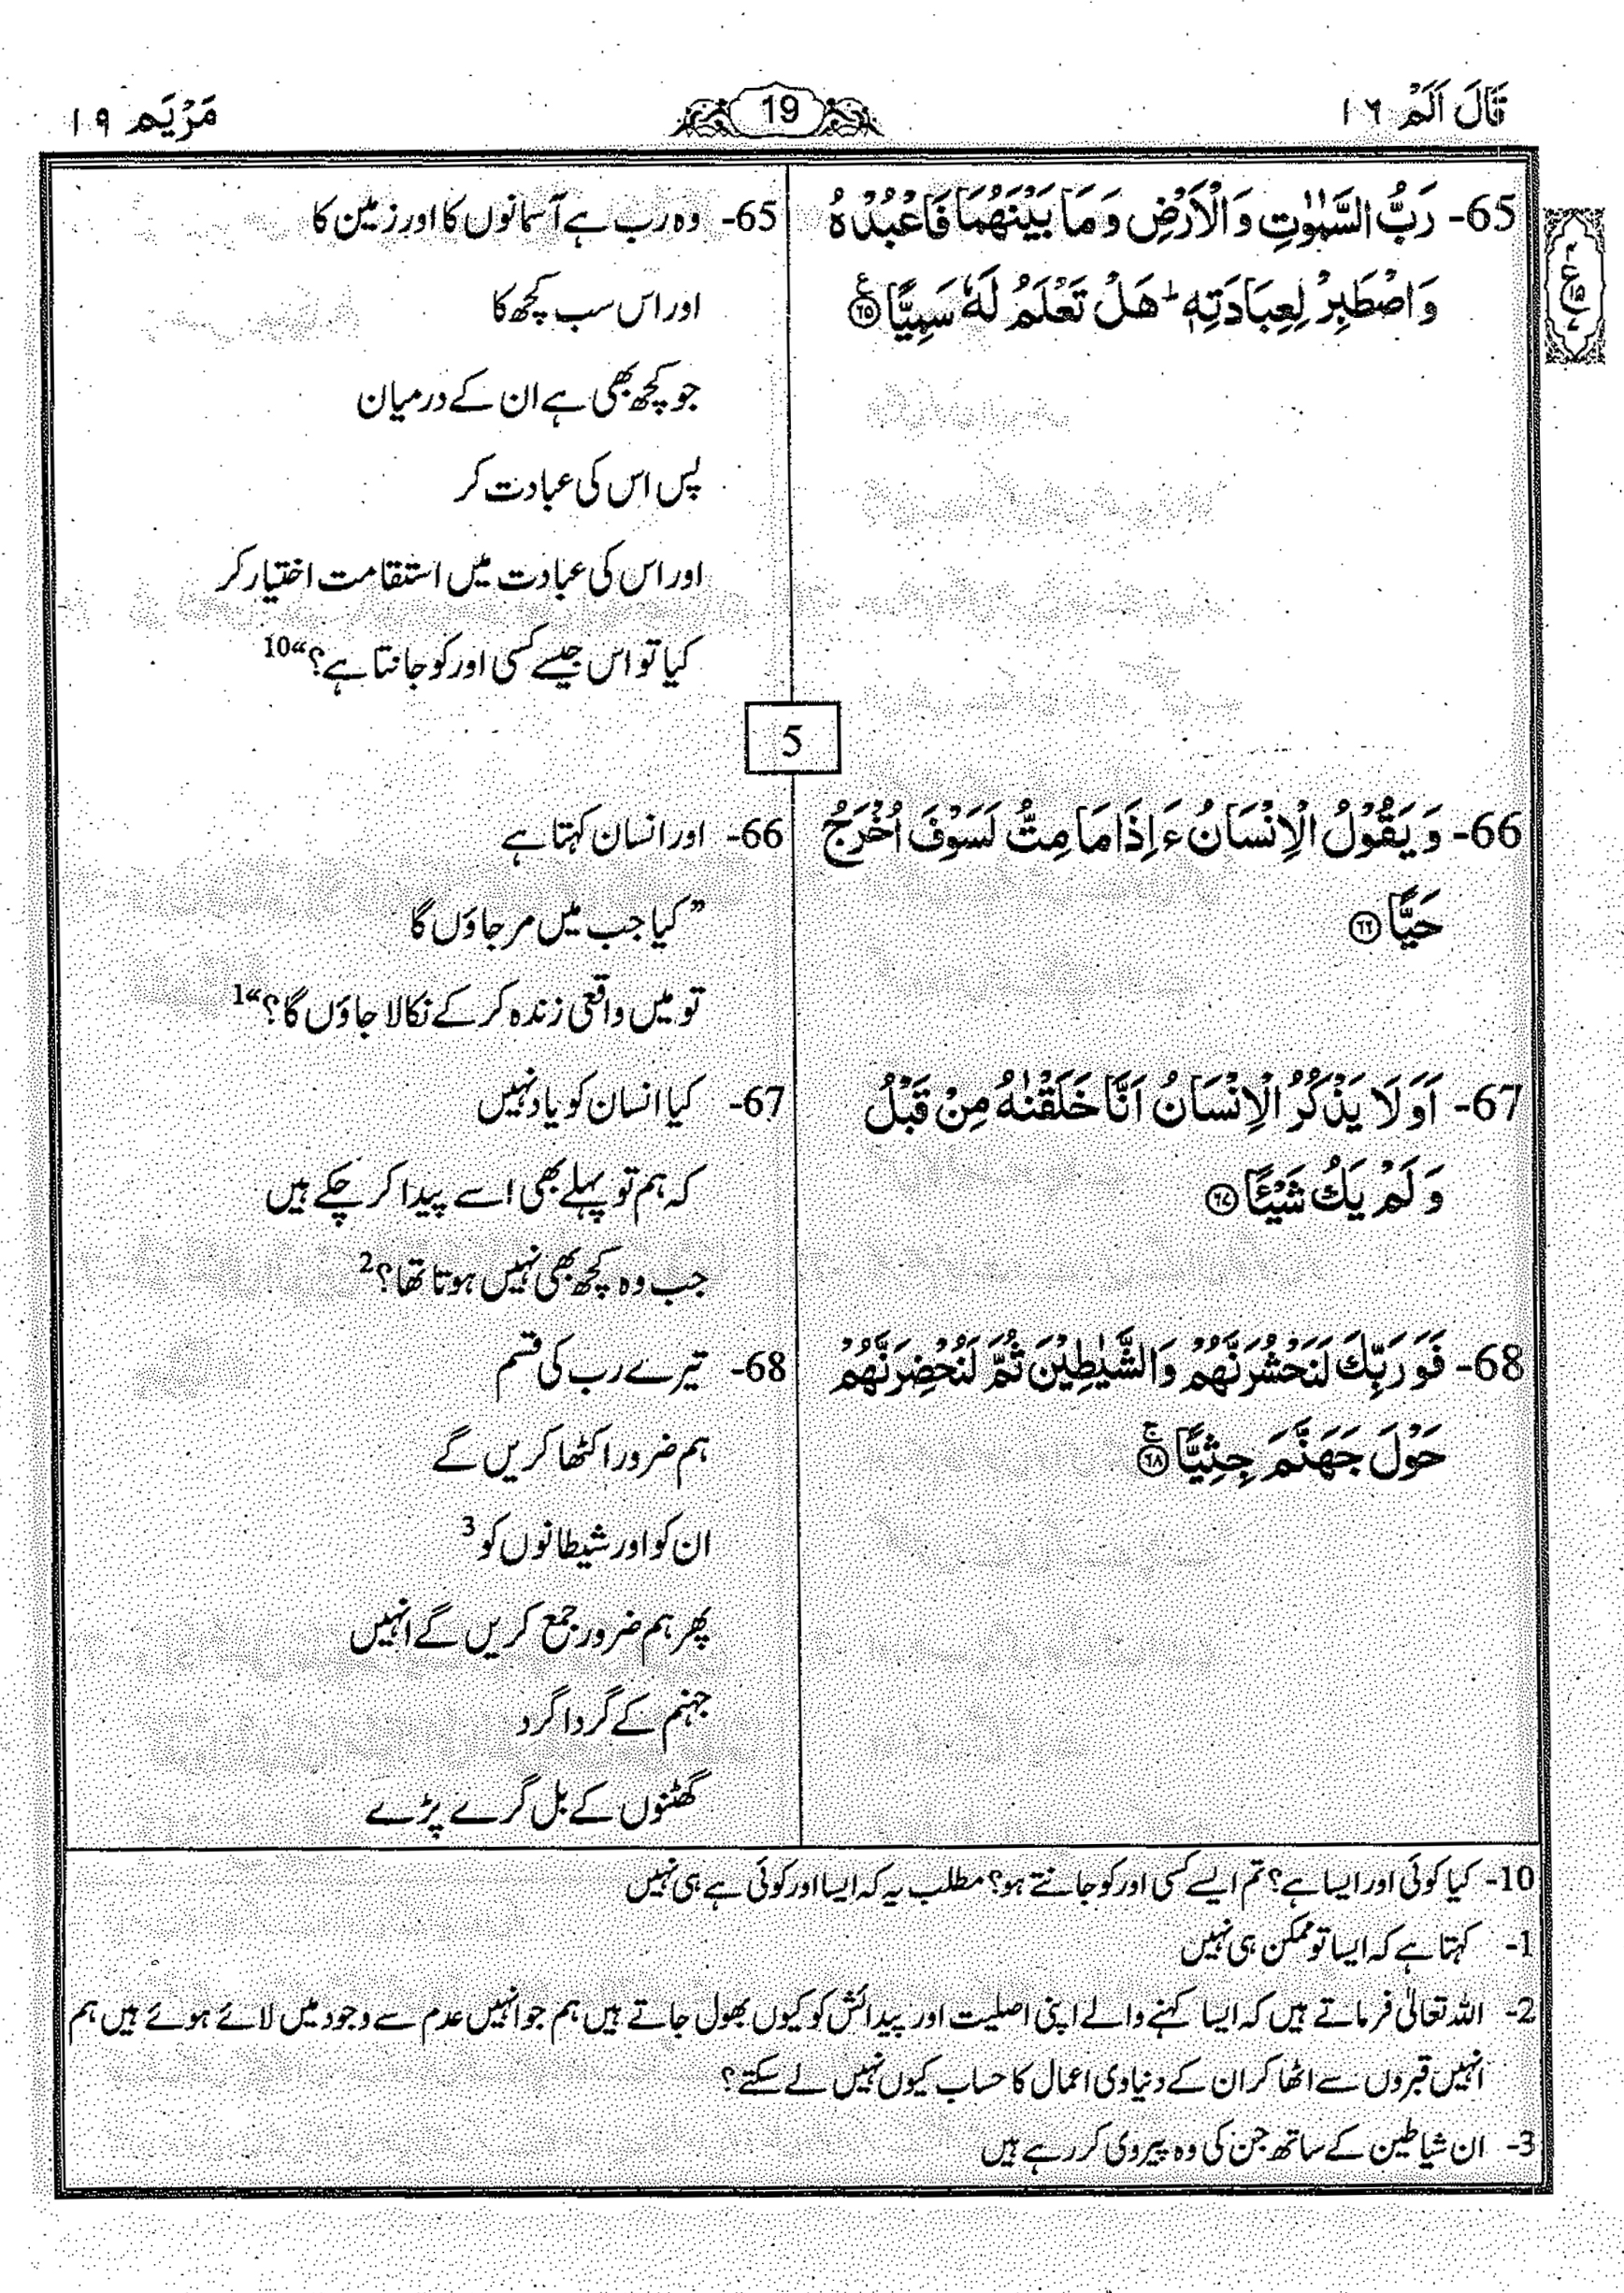 قَالَ اَلَمْ ١٦
19
مَرْيَم ١٩
65- رَبُّ السَّمٰوٰتِ وَ الْاَرْضِ وَ مَا بَيْنَهُمَا فَاعْبُدْهُ
وَ اصْطَبِرْ لِعِبَادَتِهٖ ؕ هَلْ تَعْلَمُ لَهٗ سَمِيًّا ﴿٦٥﴾ ع
65- وہ رب ہے آسمانوں کا اور زمین کا
اور اس سب کچھ کا
جو کچھ بھی ہے ان کے درمیان
پس اس کی عبادت کر
اور اس کی عبادت میں استقامت اختیار کر
کیا تو اس جیسے کسی اور کو جانتا ہے؟“10
5
66- وَ يَقُوْلُ الْاِنْسَانُ ءَ اِذَا مَا مِتُّ لَسَوْفَ اُخْرَجُ
حَيًّا ﴿٦٦﴾
66- اور انسان کہتا ہے
”کیا جب میں مر جاؤں گا
تو میں واقعی زندہ کر کے نکالا جاؤں گا؟“1
67- اَوَ لَا يَذْكُرُ الْاِنْسَانُ اَنَّا خَلَقْنٰهُ مِنْ قَبْلُ
وَ لَمْ يَكُ شَيْـًٔا ﴿٦٧﴾
67- کیا انسان کو یاد نہیں
کہ ہم تو پہلے بھی اسے پیدا کر چکے ہیں
جب وہ کچھ بھی نہیں ہوتا تھا؟2
68- فَوَ رَبِّكَ لَنَحْشُرَنَّهُمْ وَ الشَّيٰطِيْنَ ثُمَّ لَنُحْضِرَنَّهُمْ
حَوْلَ جَهَنَّمَ جِثِيًّا ﴿٦٨﴾ ج
68- تیرے رب کی قسم
ہم ضرور اکٹھا کریں گے
ان کو اور شیطانوں کو3
پھر ہم ضرور جمع کریں گے انہیں
جہنم کے گردا گرد
گھٹنوں کے بل گرے پڑے
10- کیا کوئی اور ایسا ہے؟ تم ایسے کسی اور کو جانتے ہو؟ مطلب یہ کہ ایسا اور کوئی ہے ہی نہیں
1- کہتا ہے کہ ایسا تو ممکن ہی نہیں
2- اللہ تعالیٰ فرماتے ہیں کہ ایسا کہنے والے اپنی اصلیت اور پیدائش کو کیوں بھول جاتے ہیں ہم جو انہیں عدم سے وجود میں لائے ہوئے ہیں ہم
انہیں قبروں سے اٹھا کر ان کے دنیاوی اعمال کا حساب کیوں نہیں لے سکتے؟
3- ان شیاطین کے ساتھ جن کی وہ پیروی کر رہے ہیں